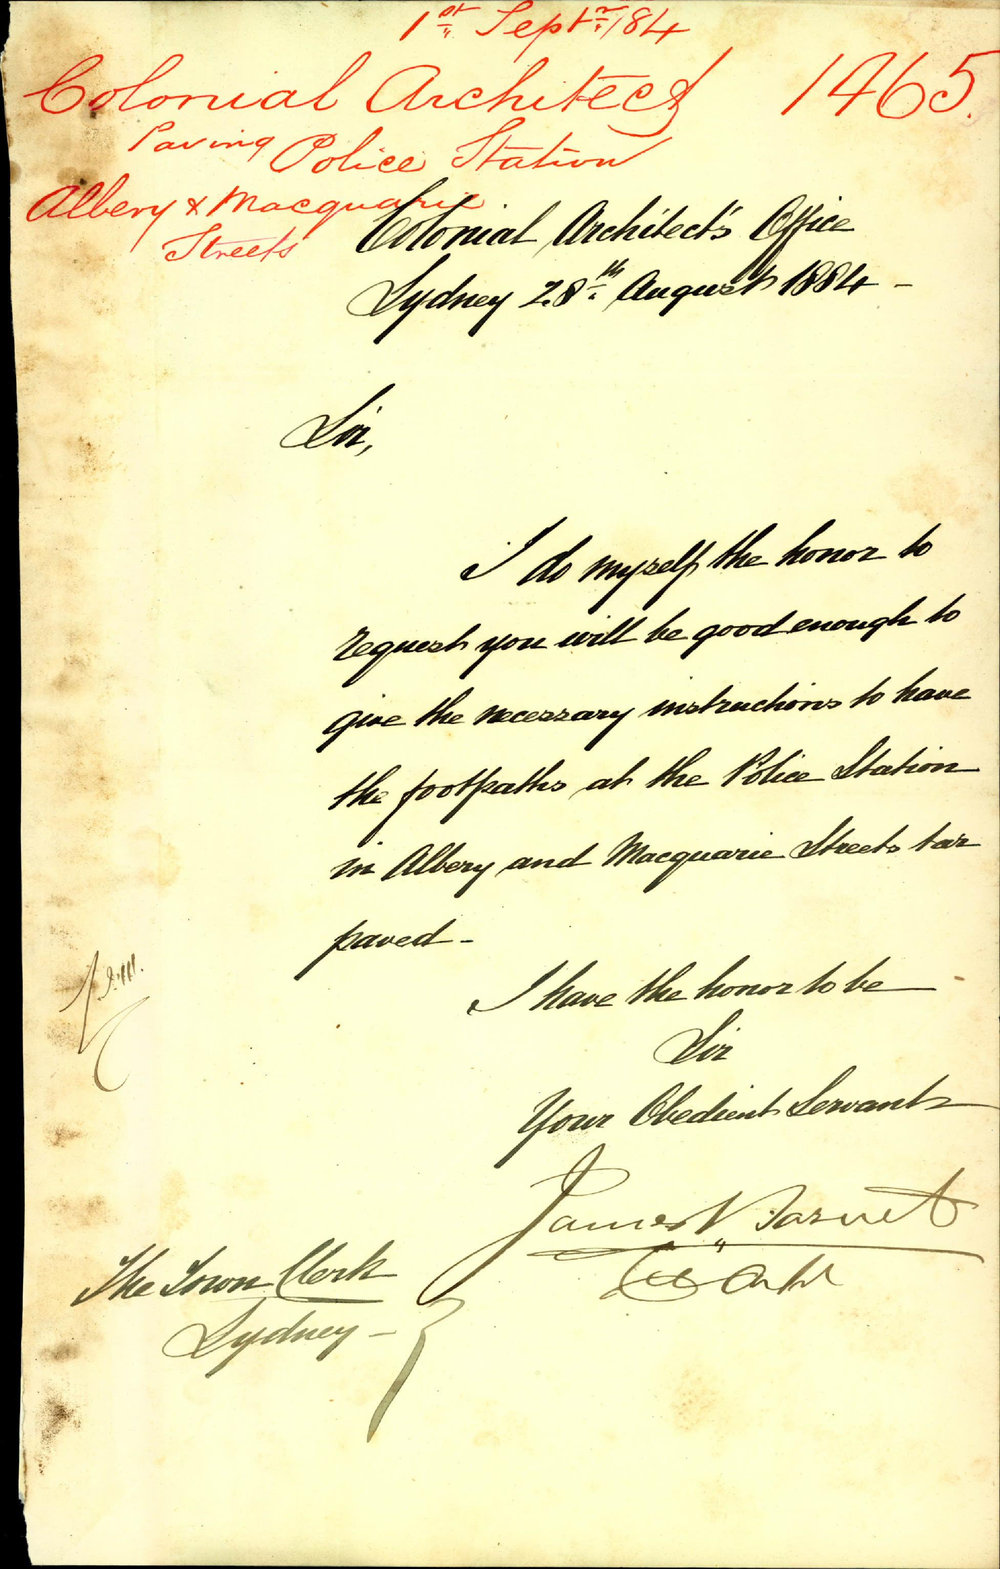 1st Septr /84
Colonial Architect 1465.
Paving Police Station
Albery & Macquarie
Streets
Colonial Architect's Office
Sydney 28th August 1884 -
Sir,
I do myself the honor to
request you will be good enough to
give the necessary instructions to have
the footpaths at the Police Station
in Albery and Macquarie Streets tar
paved -
I have the honor to be
Sir
Your Obedient Servant
James Barnet
Col Archt
The Town Clerk
Sydney -